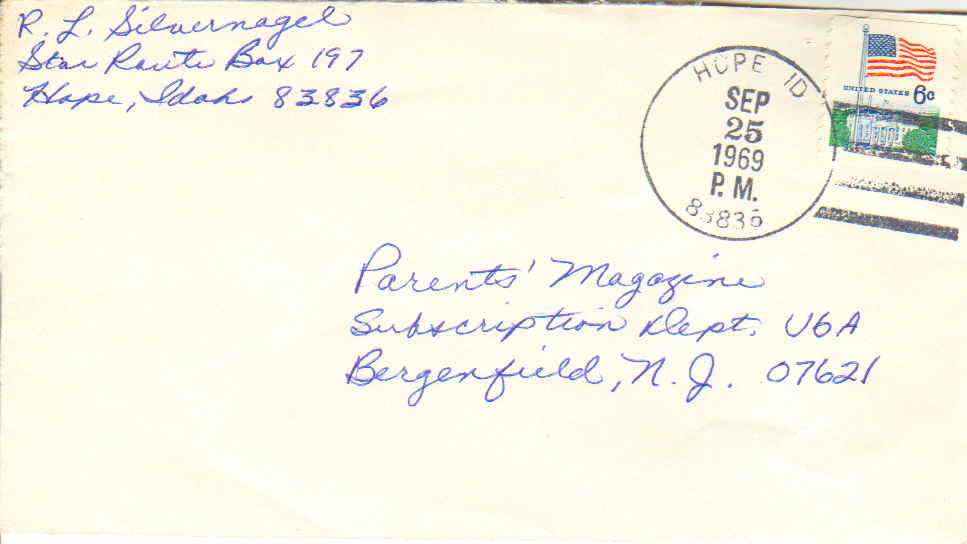 R. L. Silvernagel
Star Route Box 197
Hope, Idaho 83836
HOPE ID
SEP
25
1969
P. M.
83836
UNITED STATES 6c
Parents' Magazine
Subscription Dept. U6A
Bergenfield, N. J. 07621